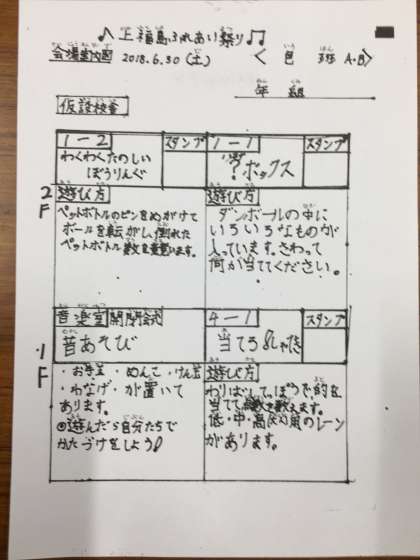 ♪上福島ふれあい祭り♫
会場案内図 2018.6.30(土) < 色 班 A・B>
年 組
仮設校舎
1-2 スタンプ
わくわくたのしい
ぼうりんぐ
遊び方
ペットボトルのピンをめがけて
ボールを転がし、倒れた
ペットボトル数を
1-1 スタンプ
ボックス
遊び方
ダンボールの中に
いろいろなものが
入っています。さわって
何か当ててください。
2F
音楽室 開閉会式
昔あそび
・お手玉・めんこ・けん玉
・わなげ・が置いて
あります。
◎遊んだら自分たちで
かたづけをしよう
4-1 スタンプ
当てろ
遊び方
わりばしてっぽうで的を
当てて
低・中・高
のレーン
があります。
1F